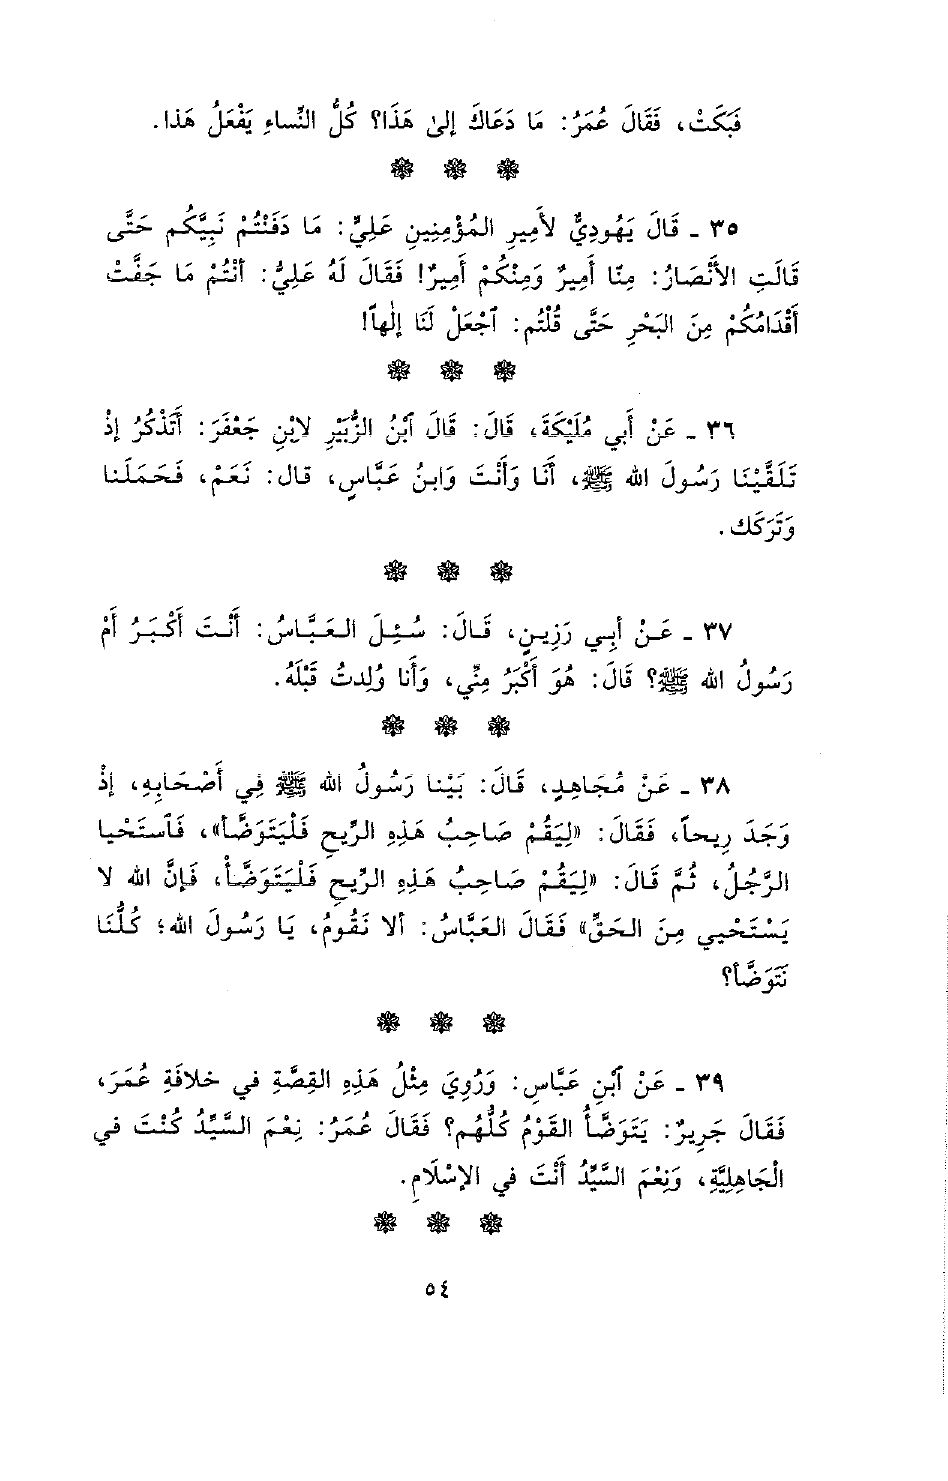 فَبَكَتْ، فَقَالَ عُمَرُ: مَا دَعَاكَ إِلىٰ هَذَا؟ كُلُّ النِّساءِ يَفْعَلُ هَذا.
٣٥ ـ قَالَ يَهُودِيٌّ لأَمِيرِ المُؤْمِنِينِ عَلِيٍّ: مَا دَفَنْتُمْ نَبِيَّكُم حَتَّى
قَالَتِ الأَنْصَارُ: مِنّا أَمِيرٌ وَمِنْكُمْ أَمِيرٌ! فَقَالَ لَهُ عَلِيُّ: أَنْتُمْ مَا جَفَّتْ
أَقْدَامُكُمْ مِنَ البَحْرِ حَتَّى قُلْتُم: ٱجْعَلْ لَنَا إِلٰهاً!
٣٦ ـ عَنْ أَبي مُلَيْكَةَ، قَالَ: قَالَ ٱبْنُ الزُّبَيْرِ لابْنِ جَعْفَرَ: أَتَذْكُرُ إِذْ
تَلَقَّيْنَا رَسُولَ الله ﷺ، أَنَا وَأَنْتَ وَابنُ عَبَّاسٍ، قال: نَعَمْ، فَحَمَلَنا
وَتَرَكَك.
٣٧ ـ عَنْ أَبِي رَزِينٍ، قَالَ: سُئِلَ العَبَّاسُ: أَنْتَ أَكْبَرُ أَمْ
رَسُولُ الله ﷺ؟ قَالَ: هُوَ أَكْبَرُ مِنِّي، وَأَنا وُلِدتُ قَبْلَهُ.
٣٨ ـ عَنْ مُجَاهِدٍ، قَالَ: بَيْنا رَسُولُ الله ﷺ فِي أَصْحَابِهِ، إِذْ
وَجَدَ رِيحاً، فَقَالَ: «لِيَقُمْ صَاحِبُ هَذِهِ الرِّيحِ فَلْيَتَوَضَّأ»، فَٱسْتَحْيا
الرَّجُلُ، ثُمَّ قَالَ: «لِيَقُمْ صَاحِبُ هَذِهِ الرِّيحِ فَلْيَتَوَضَّأْ، فَإِنَّ الله لا
يَسْتَحْيِي مِنَ الحَقِّ» فَقَالَ العَبَّاسُ: أَلا نَقُومُ، يَا رَسُولَ الله؛ كُلُّنَا
نَتَوَضَّأ؟
٣٩ ـ عَنْ ٱبْنِ عَبَّاسٍ: وَرُوِيَ مِثْلُ هَذِهِ القِصَّةِ في خلافَةِ عُمَرَ،
فَقَالَ جَرِيرٌ: يَتَوَضَّأُ القَوْمُ كُلُّهُم؟ فَقَالَ عُمَرُ: نِعْمَ السَّيِّدُ كُنْتَ في
الْجَاهِلِيَّةِ، وَنِعْمَ السَّيِّدُ أَنْتَ في الإِسْلَامِ.
٥٤